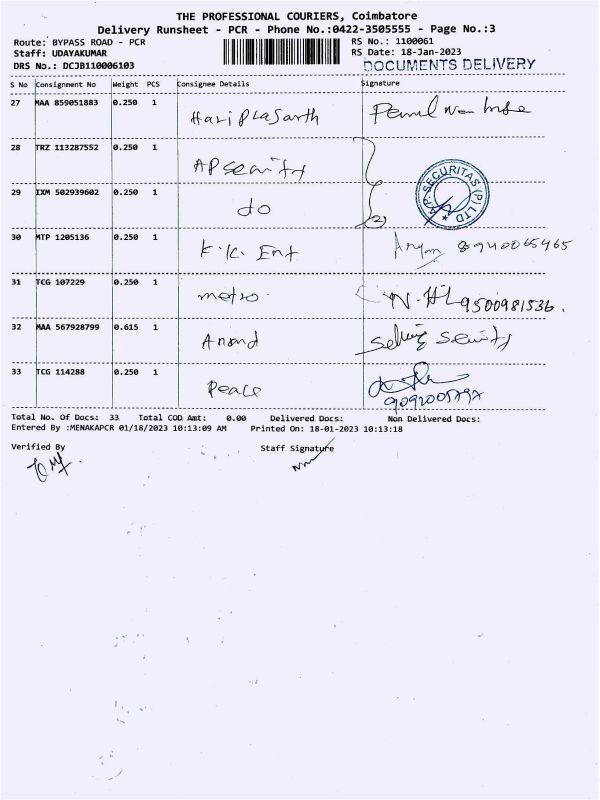 THE PROFESSIONAL COURIERS, Coimbatore
Delivery Runsheet - PCR - Phone No.:0422-3505555 - Page No.:3
Route: BYPASS ROAD - PCR
Staff: UDAYAKUMAR
DRS No.: DCJB110006103
RS No.: 1100061
RS Date: 18-Jan-2023
DOCUMENTS DELIVERY
S No Consignment No Weight PCS Consignee Details Signature
27 MAA 859051883 0.250 1 Hariprasanth
28 TRZ 113287552 0.250 1 AP security
29 IXM 502939602 0.250 1 do
A.P. SECURITAS (P) LTD
30 MTP 1205136 0.250 1 K.K. Ent 8940065465
31 TCG 107229 0.250 1 metro. 9500981536.
32 MAA 567928799 0.615 1 Anand Security
33 TCG 114288 0.250 1 Peace
Total No. Of Docs: 33 Total COD Amt: 0.00 Delivered Docs: Non Delivered Docs:
Entered By :MENAKAPCR 01/18/2023 10:13:09 AM Printed On: 18-01-2023 10:13:18
Verified By Staff Signature